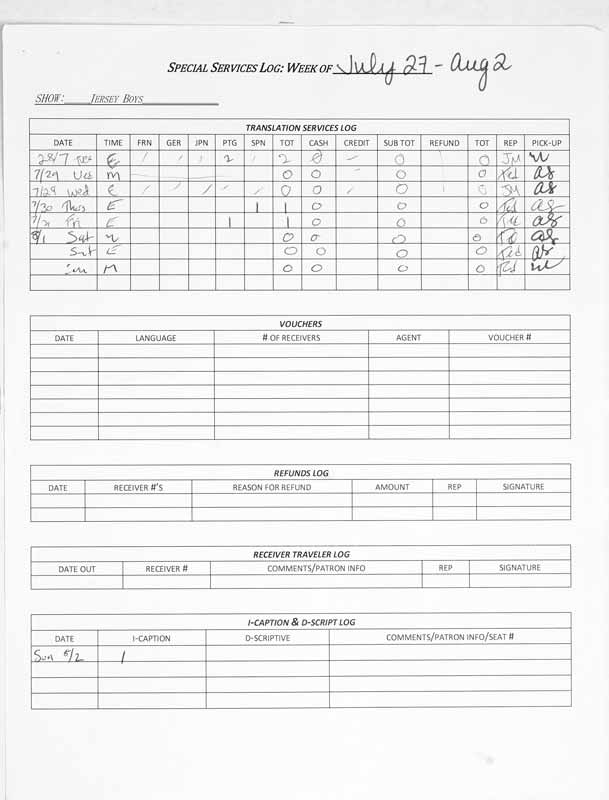 SPECIAL SERVICES LOG: WEEK OF July 27 - Aug 2
SHOW: JERSEY BOYS
TRANSLATION SERVICES LOG
DATE TIME FRN GER JPN PTG SPN TOT CASH CREDIT SUB TOT REFUND TOT REP PICK-UP
28/7 Tues E / / / 2 / 2 0 / 0 0 JM
7/29 Wed M 0 0 0 0 Ted as
7/29 Wed E / / / / / 0 0 / 0 0 JM as
7/30 Thurs E 1 1 0 0 0 Ted as
7/31 Fri E 1 1 0 0 0 Ted as
8/1 Sat M 0 0 0 0 Ted as
Sat E 0 0 0 0 Ted as
Sun M 0 0 0 0 Ted
VOUCHERS
DATE LANGUAGE # OF RECEIVERS AGENT VOUCHER #
REFUNDS LOG
DATE RECEIVER #'S REASON FOR REFUND AMOUNT REP SIGNATURE
RECEIVER TRAVELER LOG
DATE OUT RECEIVER # COMMENTS/PATRON INFO REP SIGNATURE
I-CAPTION & D-SCRIPT LOG
DATE I-CAPTION D-SCRIPTIVE COMMENTS/PATRON INFO/SEAT #
Sun 8/2 1